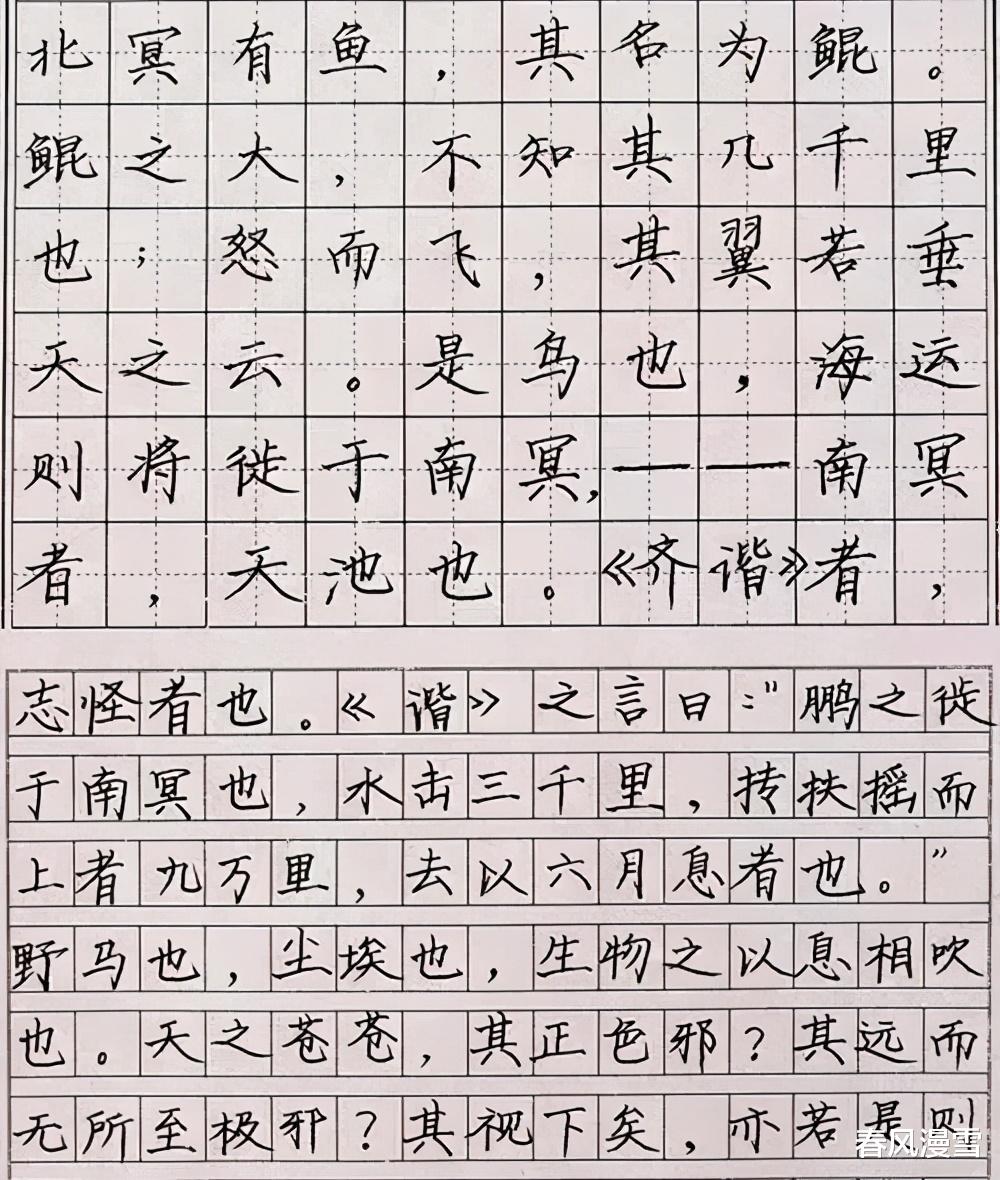 北冥有鱼，其名为鲲。
鲲之大，不知其几千里
也；怒而飞，其翼若垂
天之云。是鸟也，海运
则将徙于南冥，——南冥
者，天池也。《齐谐》者，
志怪者也。《谐》之言曰："鹏之徙
于南冥也，水击三千里，抟扶摇而
上者九万里，去以六月息者也。"
野马也，尘埃也，生物之以息相吹
也。天之苍苍，其正色邪？其远而
无所至极邪？其视下矣，亦若是则
春风漫雪